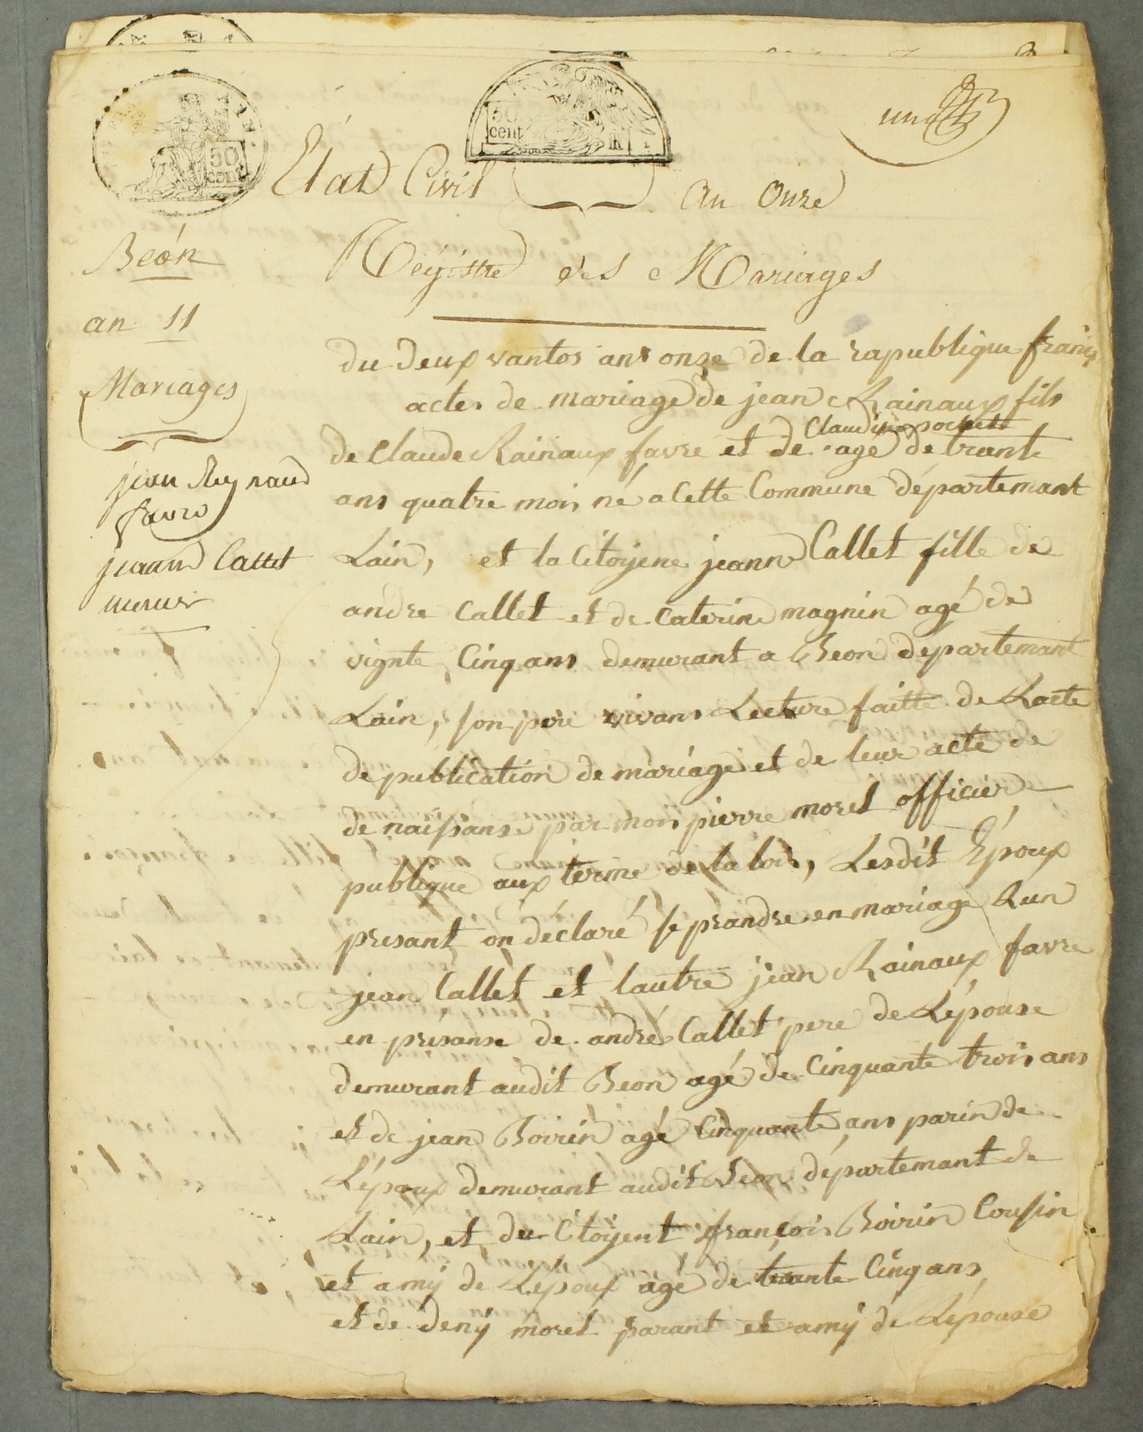 50 cent
50 cent
un
État Civil
an onze
Beón
an 11
Mariages
Régistre des Mariages
jean Reynaud
favre
jeann Callet
du deux vantos ans onze de la rapublique franç
actes de mariage de jean Rainaux fils
de Claude Rainaux favre et de Claudine pochett agé de trante
ans quatre mois né a Cette Commune départemant
Lain, et la Citoyene jeanne Callet fille de
andre Callet et de Caterine magnin agé de
vignte Cinq ans demurant a Beon départemant
Lain, son pere vivans Lecture faitte de Lacte
de publication de mariage et de leur acte de
de naissanse par moi pierre morel officier
publique aux terme de la lois, Lesdit Époux
presant on déclaré se prandre en mariage Lun
jean Callet et lautre jean Rainaux favre
en présanse de andré Callet pere de Lépouse
demurant audit Beon agé de Cinquante trois ans
et de jean Boirin agé Cinquante ans parin de
Lépoux demurant audit Beon départemant de
Lain, et du Citoyent françois Boirin Cousin
et amy de Lépoux agé de trante Cinq ans
et de deny morel parant et amy de Lépouse